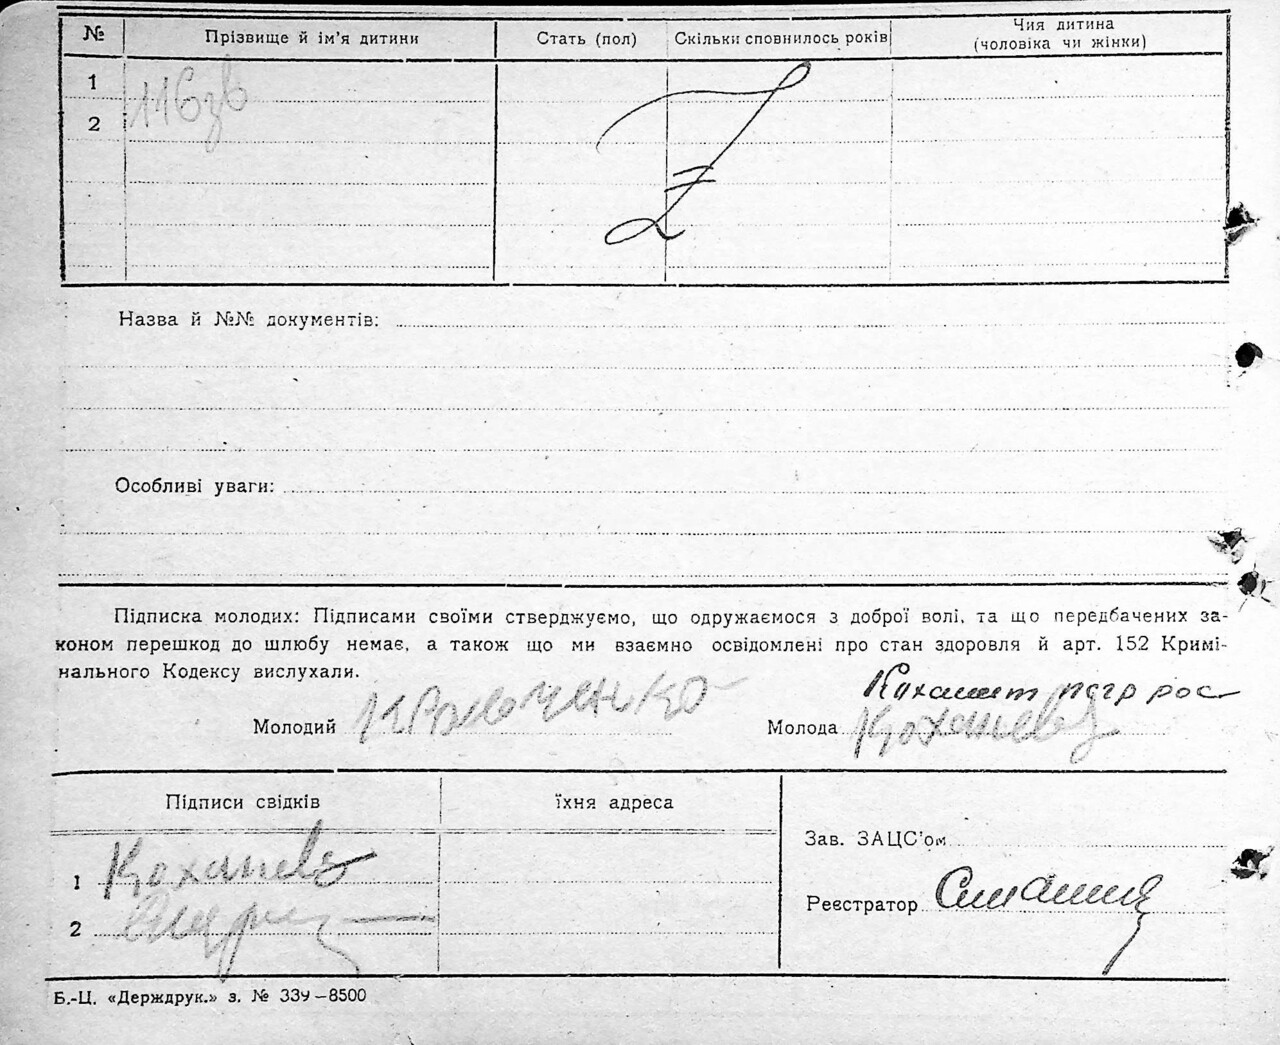 № Прізвище й ім'я дитини Стать (пол) Скільки сповнилось років Чия дитина (чоловіка чи жінки)
1 116зв
2
Назва й №№ документів:
Особливі уваги:
Підписка молодих: Підписами своїми стверджуємо, що одружаємося з доброї волі, та що передбачених за-
коном перешкод до шлюбу немає, а також що ми взаємно освідомлені про стан здоровля й арт. 152 Кримі-
нального Кодексу вислухали.
Молодий Молода
Підписи свідків їхня адреса
Зав. ЗАЦС'ом
1
Реєстратор
2
Б.-Ц. «Держдрук.» з. № 339—8500